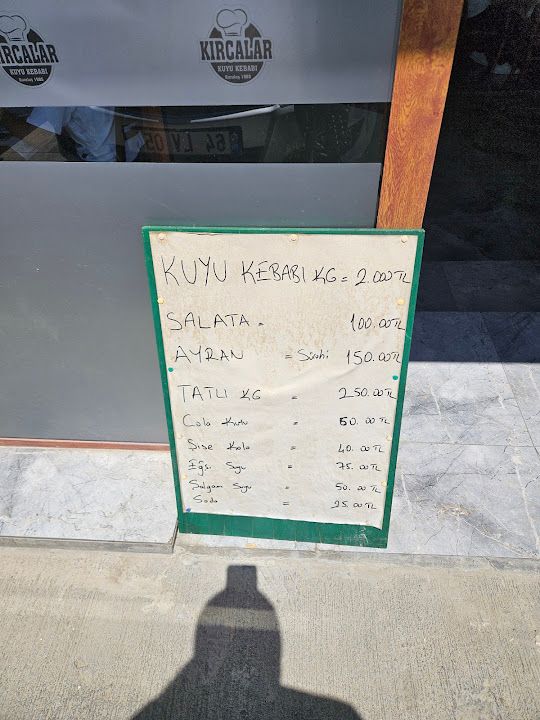 KIRCALAR
KUYU KEBABI
KIRCALAR
KUYU KEBABI
64 LV 05
KUYU KEBABI KG = 2.000TL
SALATA = 100.00TL
AYRAN = Sürahi 150.00TL
TATLI KG = 250.00TL
Cola Kutu = 50.00TL
Şişe Kola = 40.00TL
Egşi Suyu = 75.00TL
Şalgam Suyu = 50.00TL
Soda = 25.00TL